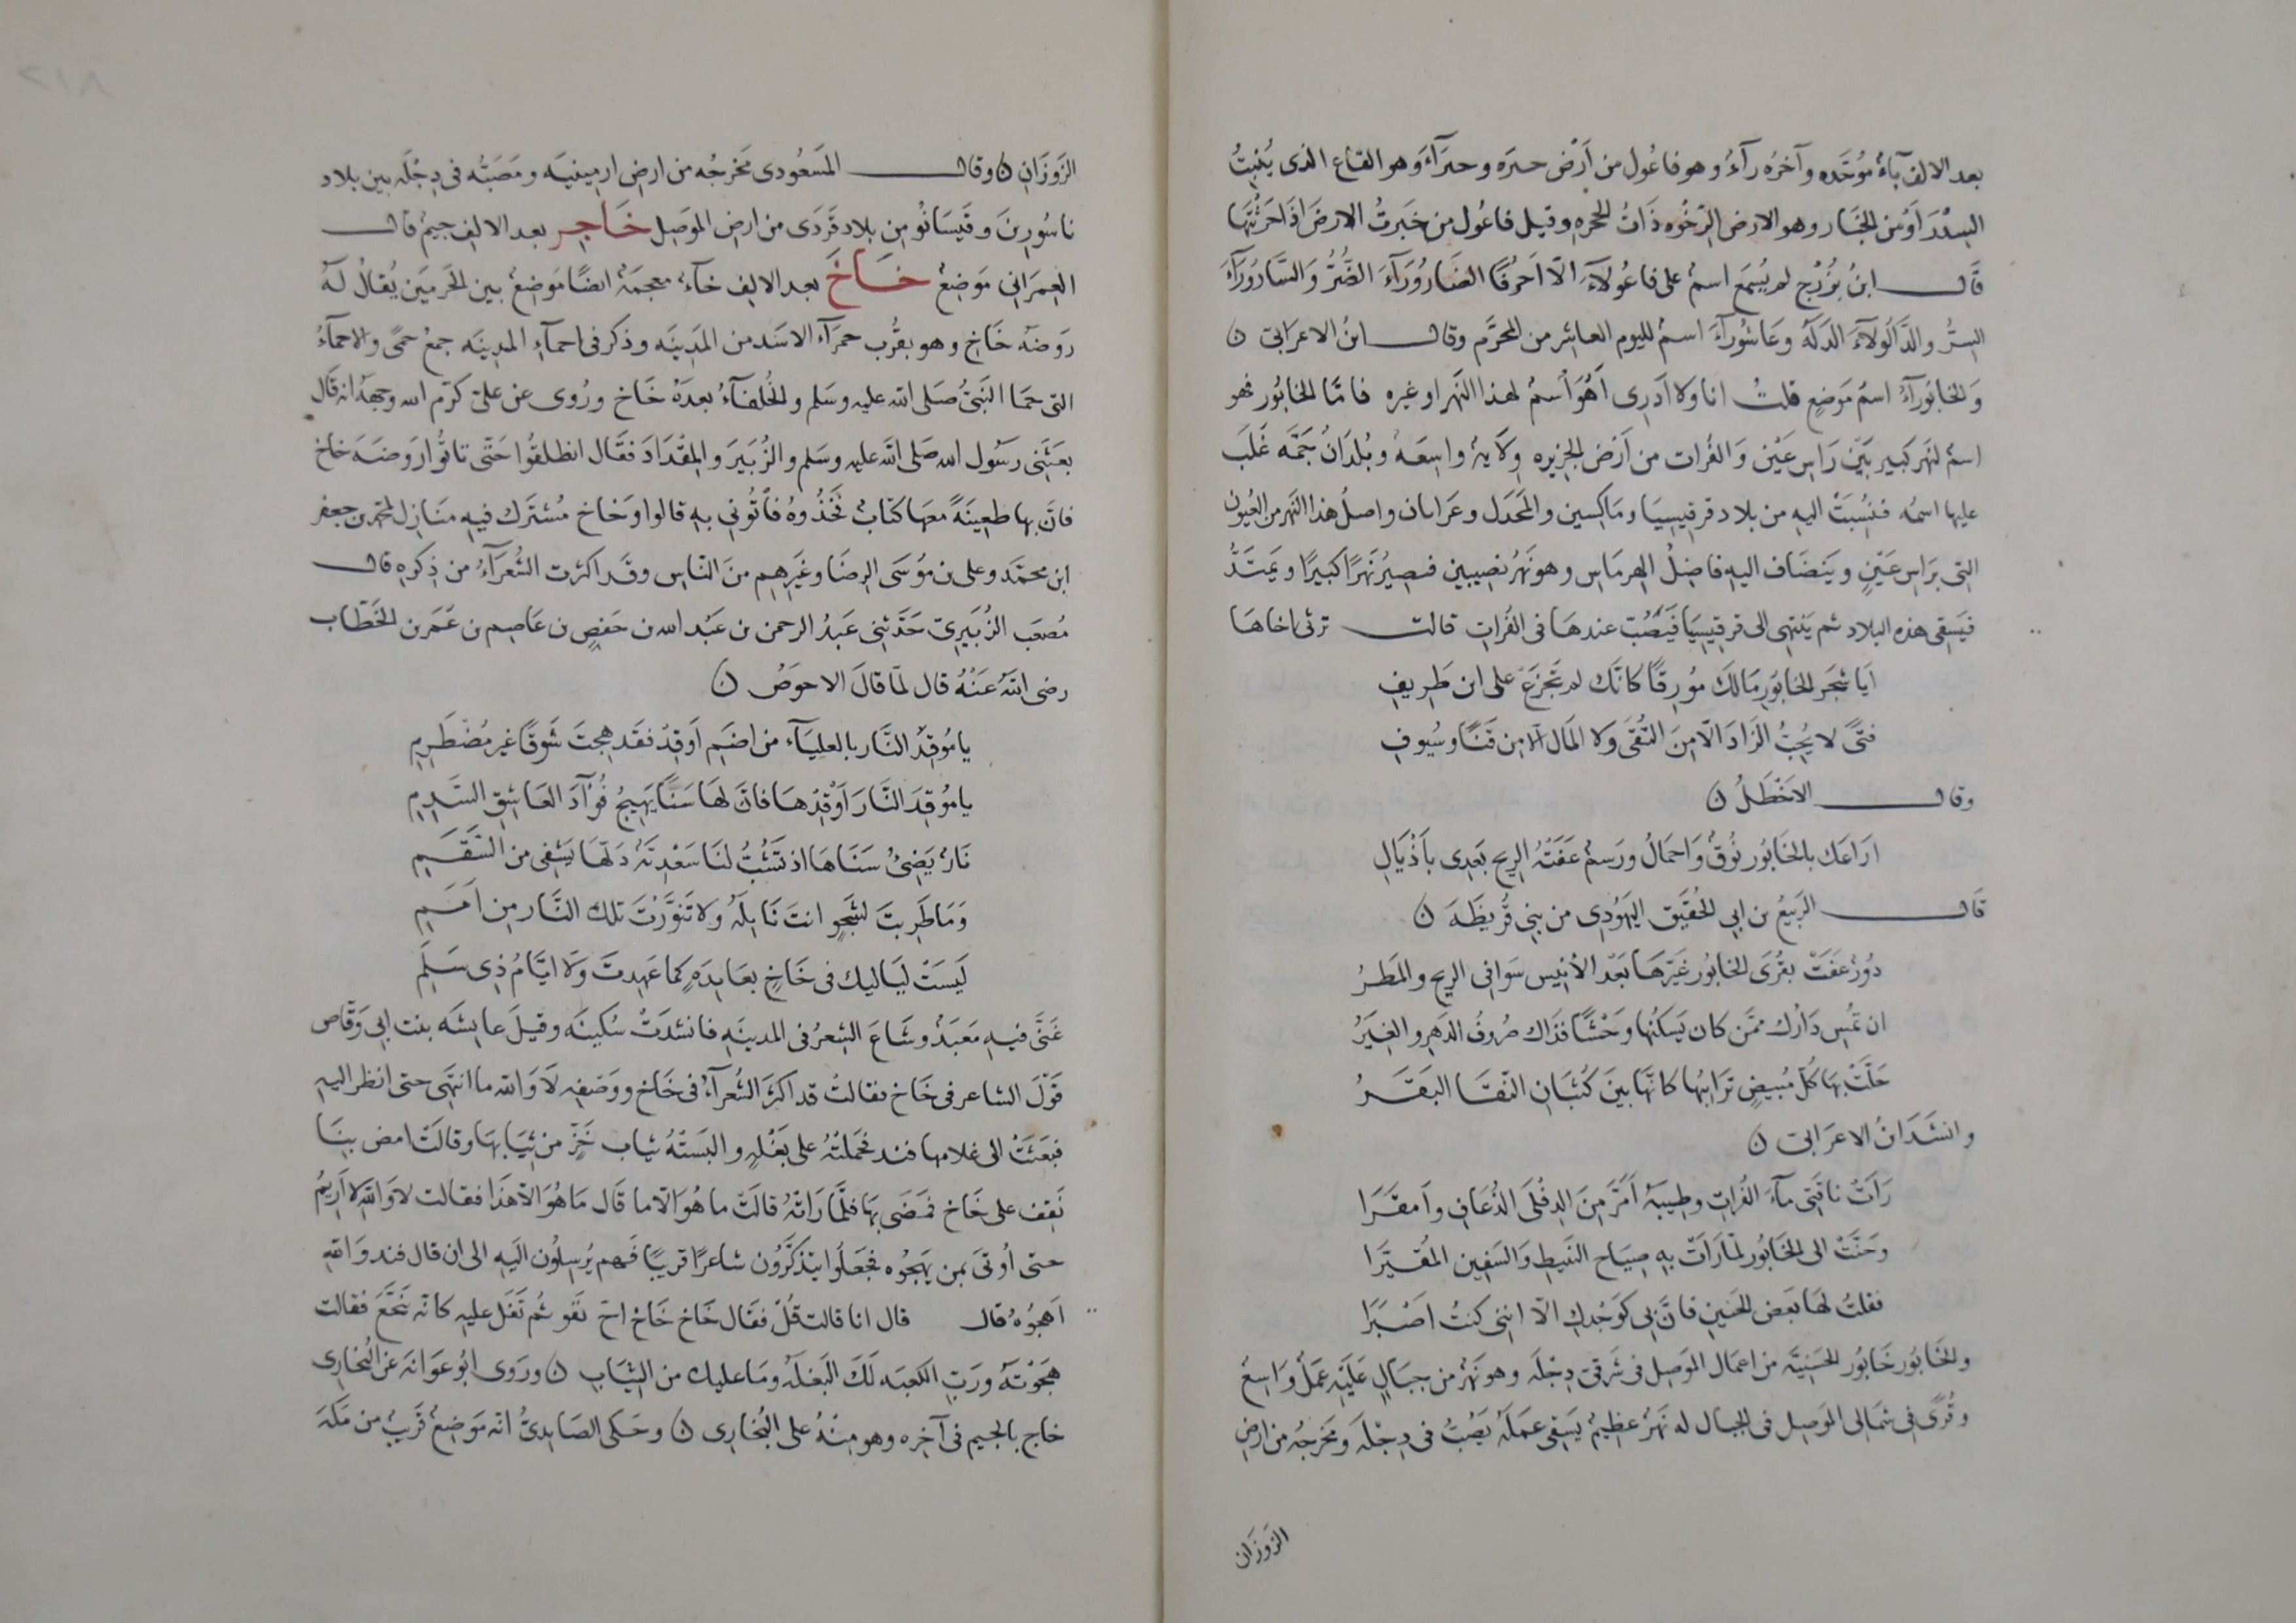 بعد الالف بآءٌ مُوَحَّده وآخره رآءُ وهو فاعُول من اَرْض خبره وخبرَآءَ وهو القاع الذى يُنْبِتُ
السِدْرَ اَوْ من الخَبَار وهو الارض الرَّخْوه ذَاتُ الحجره وقيل فاعُول من خَبَرتُ الارضَ اذَا حَرَثْتَهَا
قَال ابنُ بُزُرْج لم يُسمَع اسمٌ على فاعُولآءَ الَّا اَحرُفًا الضَارُورَآءَ الضُّرُّ وَالسَّارُورَآءَ
السِرُّ والدَّالُولآءَ الدَلَّه وعَاشُورآءَ اسمٌ لليوم العاشر من المحرَّم وقال ابنُ الاعرَابى ن
وَالخابُورآءُ اسمُ مَوضِعٍ قلتُ انا ولا اَدرِى اَهُوَ اسمٌ لهذا النَهر او غيره فامَّا الخابُور فهو
اسمٌ لنهَر كَبير بَيْن رَاس عَيْن وَالفُرات من اَرْض الجزيره وِلَايهٌ واسِعَهٌ وبُلدَانٌ جَمَّه غَلَبَ
عليها اسمُه فنُسِبَتْ اليهِ من بلاد قرقيسِيَا ومَاكِسين والمَجْدَل وعَرَابان واصلُ هذا النَهر من العُيُون
التى برَاس عَيْنٍ ويَنضَاف اليهِ فاضِلُ الهرمَاس وهو نَهرُ نصِيبين فيَصِيرُ نَهرًا كبيرًا ويَمتَدُّ
فيَسقِى هذه البلاد ثم يَنتهِى الى قرقيسِيَا فَيَصُبُّ عندهَا فى الفُراتِ قالت ترثى اخاهَا
اَيا شجَر الخابُورِ مَالكَ مُورِقًا كانَّك لم تَجْزَعْ على ابن طَرِيفِ
فتًى لا يُحِبُّ الزَادَ الَّا مِنَ التُقَى وَلا المَال الَّا مِن قَنًا وسُيوفِ
وقال الاَخْطَلُ ن
ارَاعَك بالخابُور نُوقٌ وَاجمَالُ ورَسمٌ عَفَتْهُ الرِيح بَعدِى باَذْيَالِ
قَال الرَبيعُ بن ابى الحُقَيق اليهَوُدِى من بنِى قُرَيظَهَ ن
دُورٌ عَفَتْ بقُرَى الخابُور غَيَّرَهَا بَعْدَ الاَنِيس سَوَافِى الرِيح والمَطَرُ
ان تُمسِ دَارُك ممَّن كان يَسكُنُها وَحْشًا فذَاك صُروفُ الدَهرِ والغِيَرُ
حَلَّتْ بهَا كُلُّ مُبيضٍ ترَايبُها كانَّها بينَ كُثبَانِ النَقَا البَقَرُ
وانشَدَ ابنُ الاعرَابى ن
رَاَتْ ناقَتِى مآءَ الفُراتِ وطِيبَهُ اَمَرَّ مِنَ الدِفْلَى الذُعَافِ واَمقَرَا
وحَنَّتْ الى الخَابُور لمَّا رَاَتْ بهِ صِيَاح النَبيطِ وَالسَفِين المُقَيَّرَا
فقلتُ لهَا بَعضَ الحَنِينِ فانَّ بى كوَجْدِكِ الَّا انِنى كنتُ اَصْبَرَا
والخَابُور خَابُور الحَسَنِيَّه من اعمَال المَوصِل فى شَرقى دِجْلَه وهو نَهرٌ من جبَالٍ عَليَه عَمَلٌ وَاسِعٌ
وقُرًى فى شمَالِى المَوصِل فى الجبال له نَهرٌ عظيمٌ يَسقِى عمَلَه يَصُبُّ فى دِجْلَه ومَخرَجُه من ارض
الزَوزَان
الزَوزَانِ ن وقال المَسعُودى مَخرجُه من ارضِ ارمِينيَه ومَصَبُّه فى دِجْلَه بين بلاد
باسُورينَ وفَيسَابُو من بلاد قَردَى من ارض المَوصِل خَاجِر بعد الالِف جيمٌ قال
العِمرَانى مَوضِعٌ خَاخ بعد الالِف خآءٌ معجمَهٌ ايضًا مَوضِعٌ بين الحَرمَين يُقالُ لَهُ
رَوضَهُ خَاخٍ وهو بقُرب حمرَآء الاسَد من المَدِينَه وذكر فى احمآءِ المدِينَه جمعُ حمًى والاحمآءُ
التى حمَا النَبىُّ صَلى اللَّه عليه وسَلم والخُلفآءُ بعدَهُ خَاخ ورُوِى عن علىّ كرَّم الله وجهَهُ انه قَال
بعَثَنِى رسَوُل الله صَلى اللَّه عليه وسَلم والزُبَيرَ والمِقْدَادَ فقَال انطلِقُوا حَتَّى تاتُوا رَوضَهَ خاخ
فانَّ بها ظعِينَهً معَهَا كتَابٌ فخُذُوهُ فأتُونى بهِ قالوا وَخاخ مُشتَرَك فيه مَنَازِل لمحمد بن جعفر
ابن محمَّد وعلى بن مُوسَى الرِضَا وغَيرِهِم منَ النَاس وقَد اكثرت الشُعَرَآءُ من ذِكرِهِ قال
مُصعَب الزُبَيرِى حَدَّثنِى عَبدُ الرحمن بن عَبْد الله بن حَفصِ بن عَاصِم بن عُمَر بن الخَطّاب
رضى اللَّه عَنْهُ قال لمَّا قالَ الاحوَصُ ن
يا مُوقِدَ النَّار بالعليَآء من اضَمِ اَوقِدْ فقَد هِجتَ شَوقًا غير مُضْطَرِمِ
يا مُوقِدَ النَّارَ اَوْقِدْهَا فانَّ لهَا سَنًا يَهِيجُ فُؤآدَ العَاشِقِ السَدِمِ
نَارٌ يَضِىُ سَنَاهَا اذ تَشُبُّ لنَا سَعْدِيَّهٌ دَلّهَا يَشفِى من السَقَمِ
وَمَا طَرِبتَ لشَجْوٍ انتَ نَايلُهُ وَلا تَنَوَّرْتَ تلك النَّار مِن اَمَمِ
لَيسَتْ ليَاليك فى خَاخٍ بعَايدَهٍ كما عَهِدتَ وَلا ايَّامُ ذِى سَلَمِ
غَنَّى فيهِ مَعبَدٌ وشَاعَ الشِعرُ فى المدينَهِ فانشدَتْ سُكَينَه وقيلَ عايشَه بنت ابى وَقّاص
قَوْلَ الشاعر فى خَاخ فقالتُ قد اكثَرَ الشُعرآءُ فى خَاخ ووَصْفِهِ لَا وَاللهِ ما انتَهى حتى انظر اليه
فبَعَثَتْ الى غلامها فند فحَمَلتْهُ على بَغْلهٍ والبَستْهُ ثيابَ خَزٍّ من ثيَابهَا وقالَتْ امضِ بنَا
نَقِف على خَاخ فمَضَى بهَا فلمَّا رَاَتْهُ قالَتْ ما هُوَ الَّا ما قَال مَا هُوَ الَّا هَذَا فقالت لا وَاللهِ لا اَرِيمُ
حتى اُوتَى بمن يَهجُوه فجَعَلُوا يتذكَّرُون شاعرًا قريبًا فَهم يُرسِلُون الَيهِ الى ان قال فند وَاللهِ
اَهجُوهُ قال قال انا قالت قُلْ فقَال خَاخ خَاخ اخّ تَفو ثُم تَفَل عليهِ كانَّه تَنَخَّعَ فقالت
هَجَوْتَهُ ورَبّ الكعبَه لَكَ البَغلَهُ ومَا عليك من الثِيَابِ ن ورَوى ابُو عَوَانهَ عن البُخارى
خاج بالجيم فى آخِره وهو مِنْهُ على البُخَارى ن وحَكى الصَايدِىُّ انّه مَوضِعٌ قَريبٌ من مَكهَ